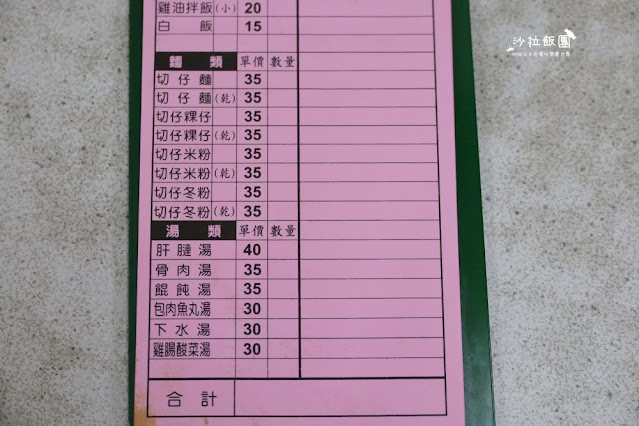 雞油拌飯(小) 20
白飯 15
麵類 單價 數量
切仔麵 35
切仔麵(乾) 35
切仔粿仔 35
切仔粿仔(乾) 35
切仔米粉 35
切仔米粉(乾) 35
切仔冬粉 35
切仔冬粉(乾) 35
湯類 單價 數量
肝腱湯 40
骨肉湯 35
餛飩湯 35
包肉魚丸湯 30
下水湯 30
雞腸酸菜湯 30
合計
沙拉飯團